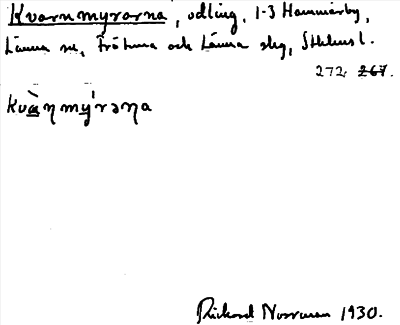 Kvarnmyrarna, odling, 1-3 Hammarby,
Länna sn, Frötuna och Länna slg, Sthlms l.
272 267.
kvà̱ꞃmý̱rəꞃa
Rickard Norrman 1930.